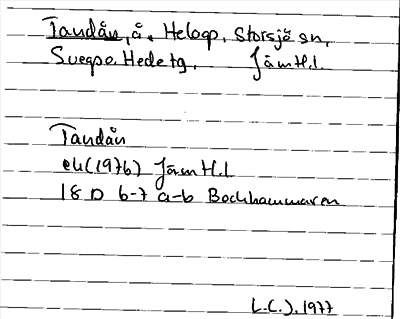 Tandån, å. Helagp, Storsjö sn,
Svegs o. Hede tg. JämH.l.
Tandån
ek(1976) JämH.l
18 D 6-7 a-b Bockhammaren
L.C.J. 1977